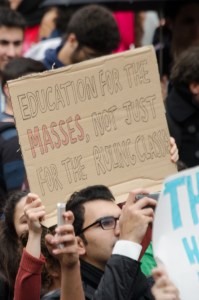 EDUCATION FOR THE
MASSES, NOT JUST
FOR THE RULING CLASS
TH